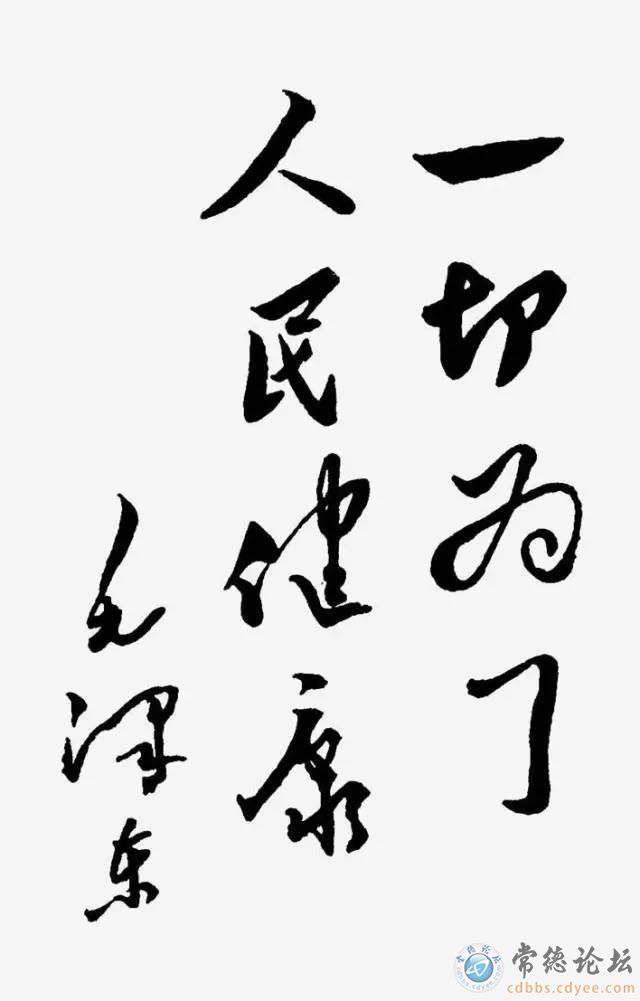 一切为了
人民健康
毛泽东
常德论坛
cdbbs.cdyee.com